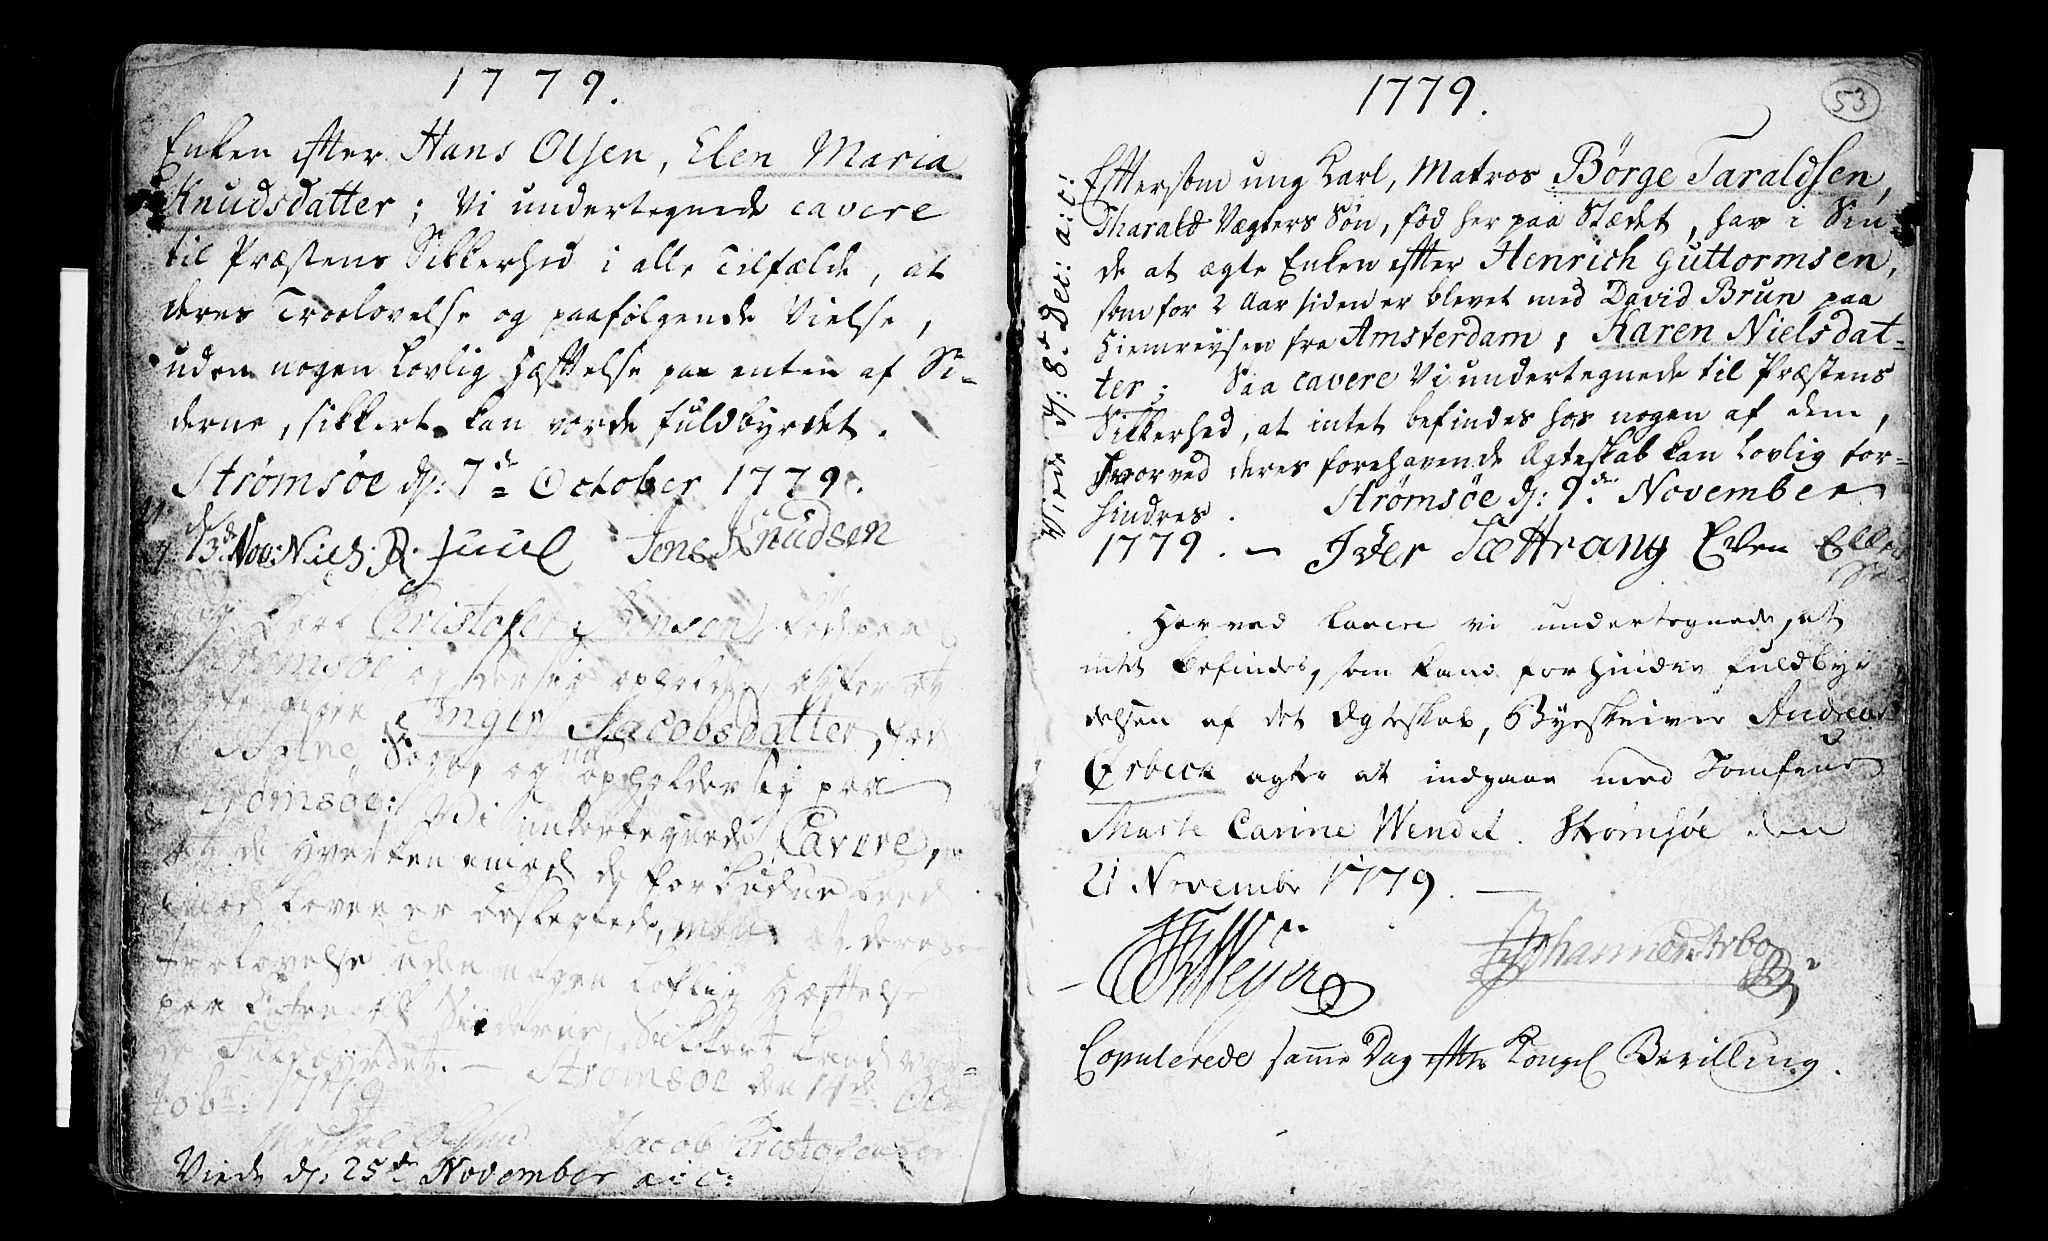 1779.
Enken efter Hans Olsen, Elen Maria
Knudsdatter; Vi undertegnede cavere
til Præstens Sikkerhed i alle Tilfælde, at
deres Troelovelse og paafølgende Vielse,
uden nogen Lovlig Hæftelse paa enten af Si-
derne, sikkert kan vorde fuldbyrdet.
Strømsøe d: 7de October 1779.
13de Nov: Niels R. Juul Jens Knudsen
Karl Christofer Jensen, fød paa
Strømsøe og
Inger Jacobsdatter, fød
og opholder sig paa
Strømsøe: Vi undertegnede Cavere,
at de hverken ere i de forbudne Leed
imod Loven er beslegtede, men at deres
trolovelse uden nogen Loflig Hæftelse
paa Enten af Siderne, Sikkert kand vor-
de Fuldbyrdet. — Strømsøe den 11te Oc-
tobr: 1779
Jacob Christofersen
Viede d: 25de November a: c:
1779.
53
Eftersom ung Karl, Matros Børge Taraldsen,
Tharald Vægters Søn, fød her paa Stædet, har i Sin-
de at ægte Enken efter Henrich Guttormsen,
som for 2 Aar siden er blevet med David Brun paa
Hiemreysen fra Amsterdam, Karen Nielsdat-
ter; Saa cavere Vi undertegnede til Præstens
Sikkerhed, at intet befindes hos nogen af dem,
hvorved deres forehavende Ægteskab kan Lovlig for-
hindres. Strømsøe d: 9de November
1779. — Iver Sættrang Even
Viede d: 8de Dec: a: c:
Herved Cavere vi undertegnede, at
intet befindes, som kand forhindre fuldbyr
delsen af det Ægteskab, Byeskriver Andreas
Orbeck agter at indgaae med Jomfrue
Marte Carine Wendel. Strømsøe den
21 Novembr 1779. —
Meyer Johannes Arbo
Copulerede samme Dag efter Kongel Bevilling.